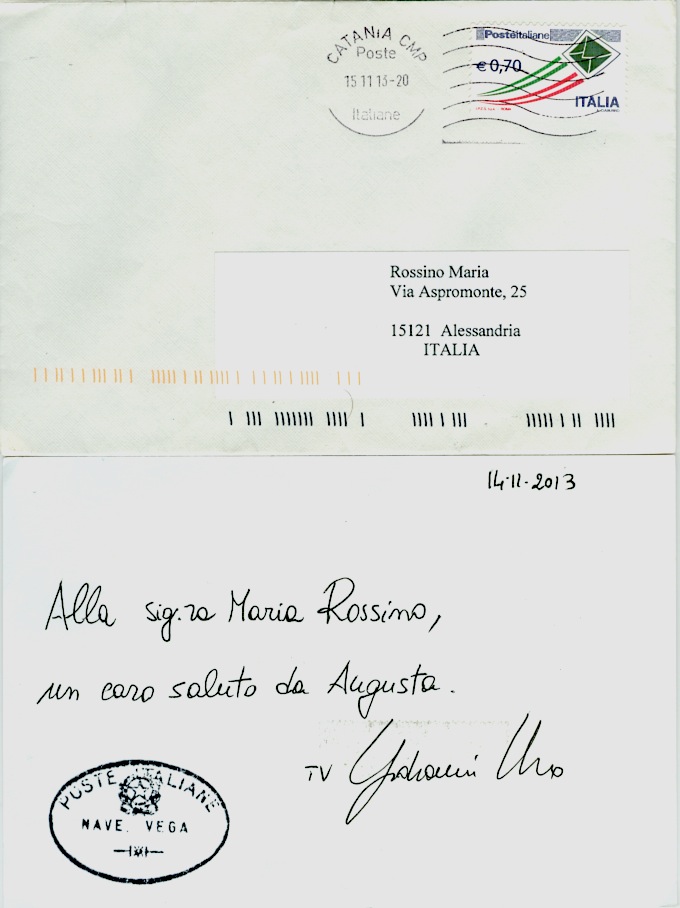 CATANIA CMP
Poste
15 11 13-20
Italiane
Posteitaliane
€ 0,70
ITALIA
Rossino Maria
Via Aspromonte, 25
15121 Alessandria
ITALIA
14-11-2013
Alla sig.ra Maria Rossino,
un caro saluto da Augusta.
TV
POSTE ITALIANE
NAVE VEGA